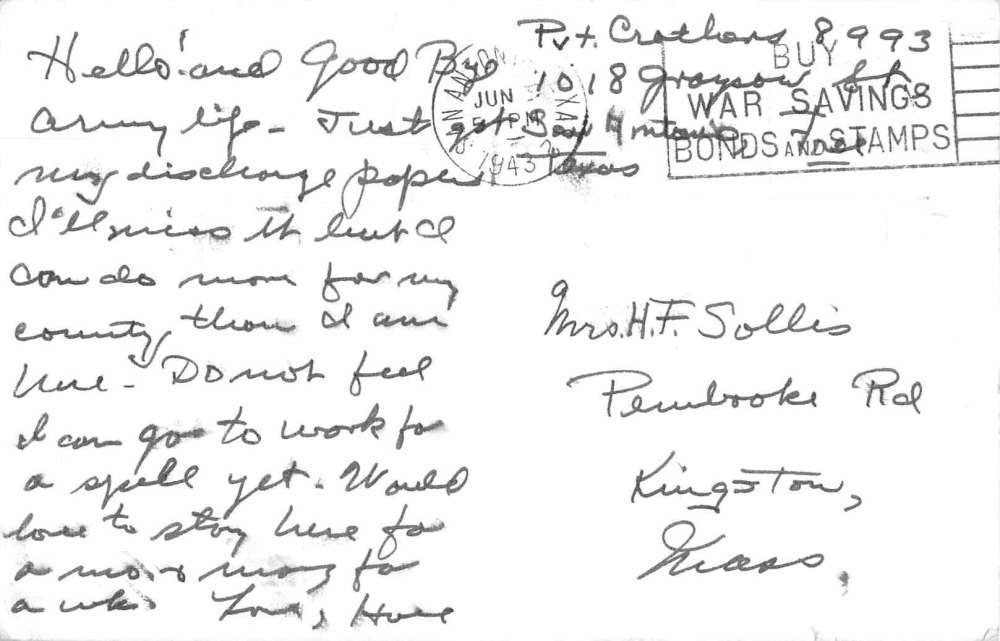 Hello! and Good Bye
army life - Just got
my discharge papers
I'll miss it but I
can do more for my
country than I am
here - Do not feel
I can go to work for
a spell yet. Would
love to stay here for
a mo. & may for
a wk. Love,
Pvt. Crothers 8993
1018 Grayson St.
San Antonio,
Texas
SAN ANTONIO
JUN
PM
1943
BUY
WAR SAVINGS
BONDS AND STAMPS
Mrs. H.F. Sollis
Pembroke Rd
Kingston,
Mass.